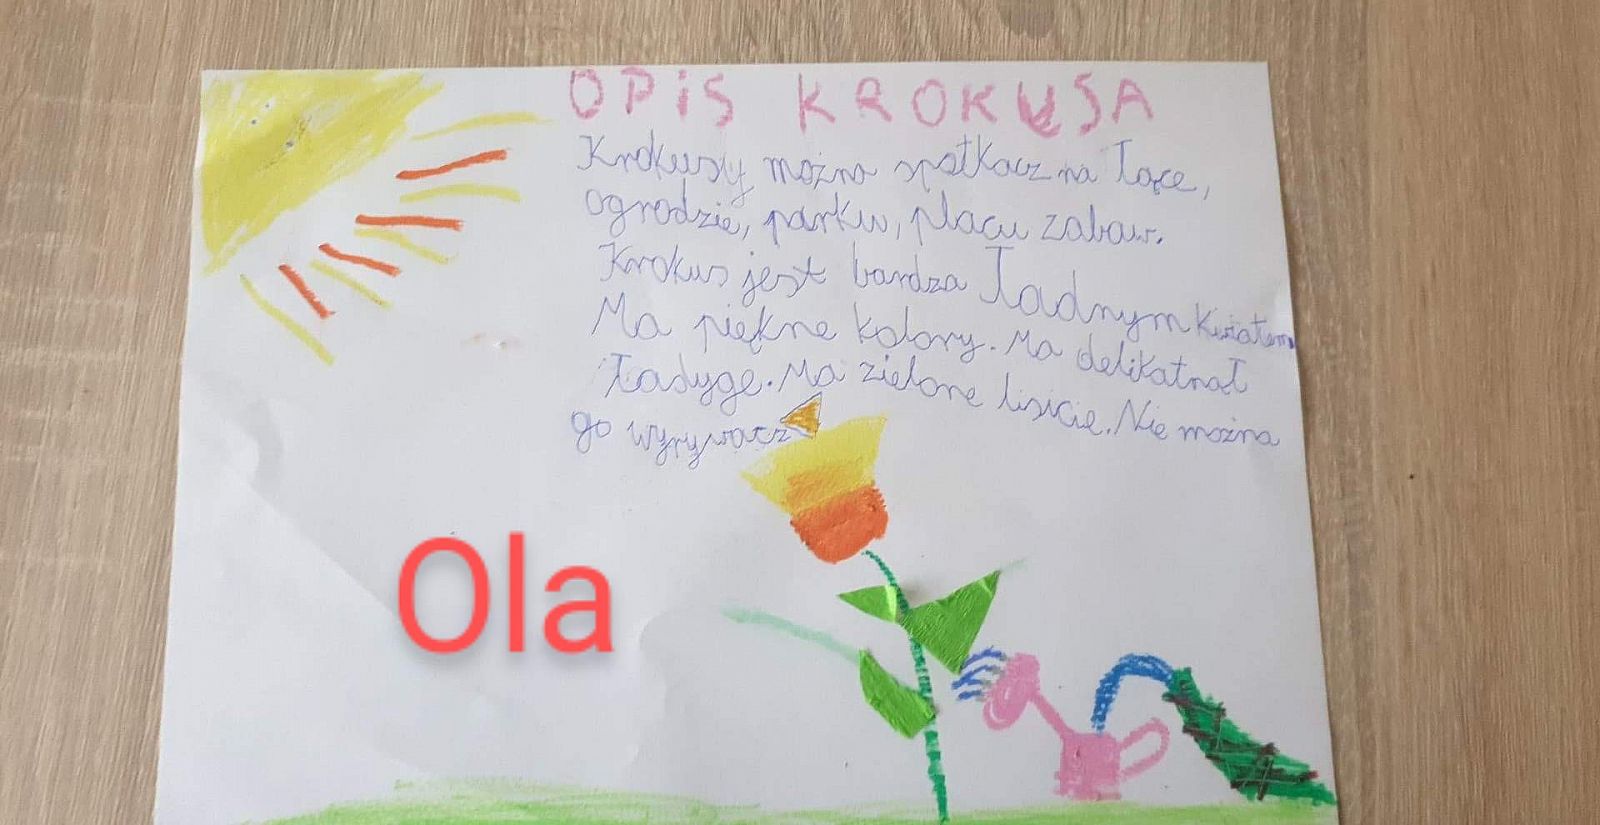 OPiS KROKUSA
Krokusy można spotkacz na łące,
ogrodzie, parku, placu zabaw.
Krokus jest bardza ładnym kwiatem.
Ma piękne kolory. Ma delikatnął
ładygę. Ma zielone liscie. Nie można
go wyrywacz
Ola